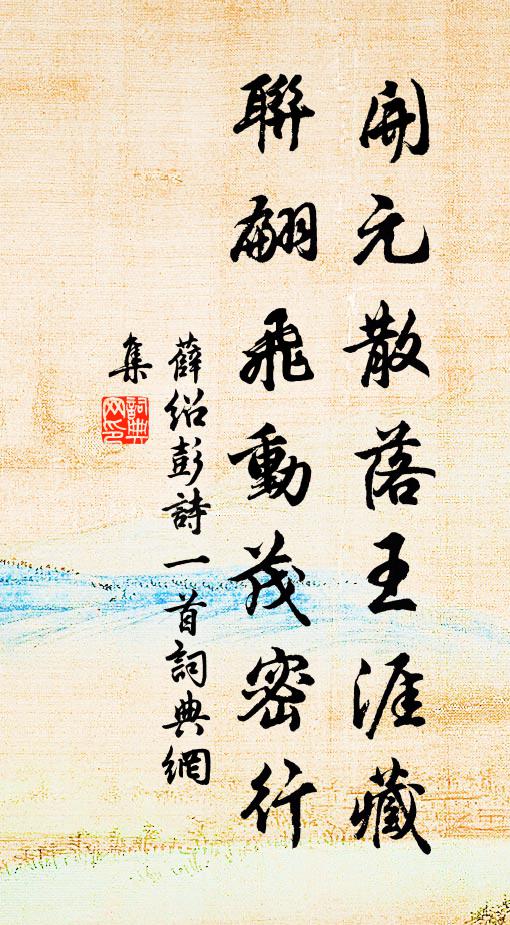 開元散落王涯藏
聯翩飛動茂密行
薛紹彭詩一首詞典網
集
詞典
网印